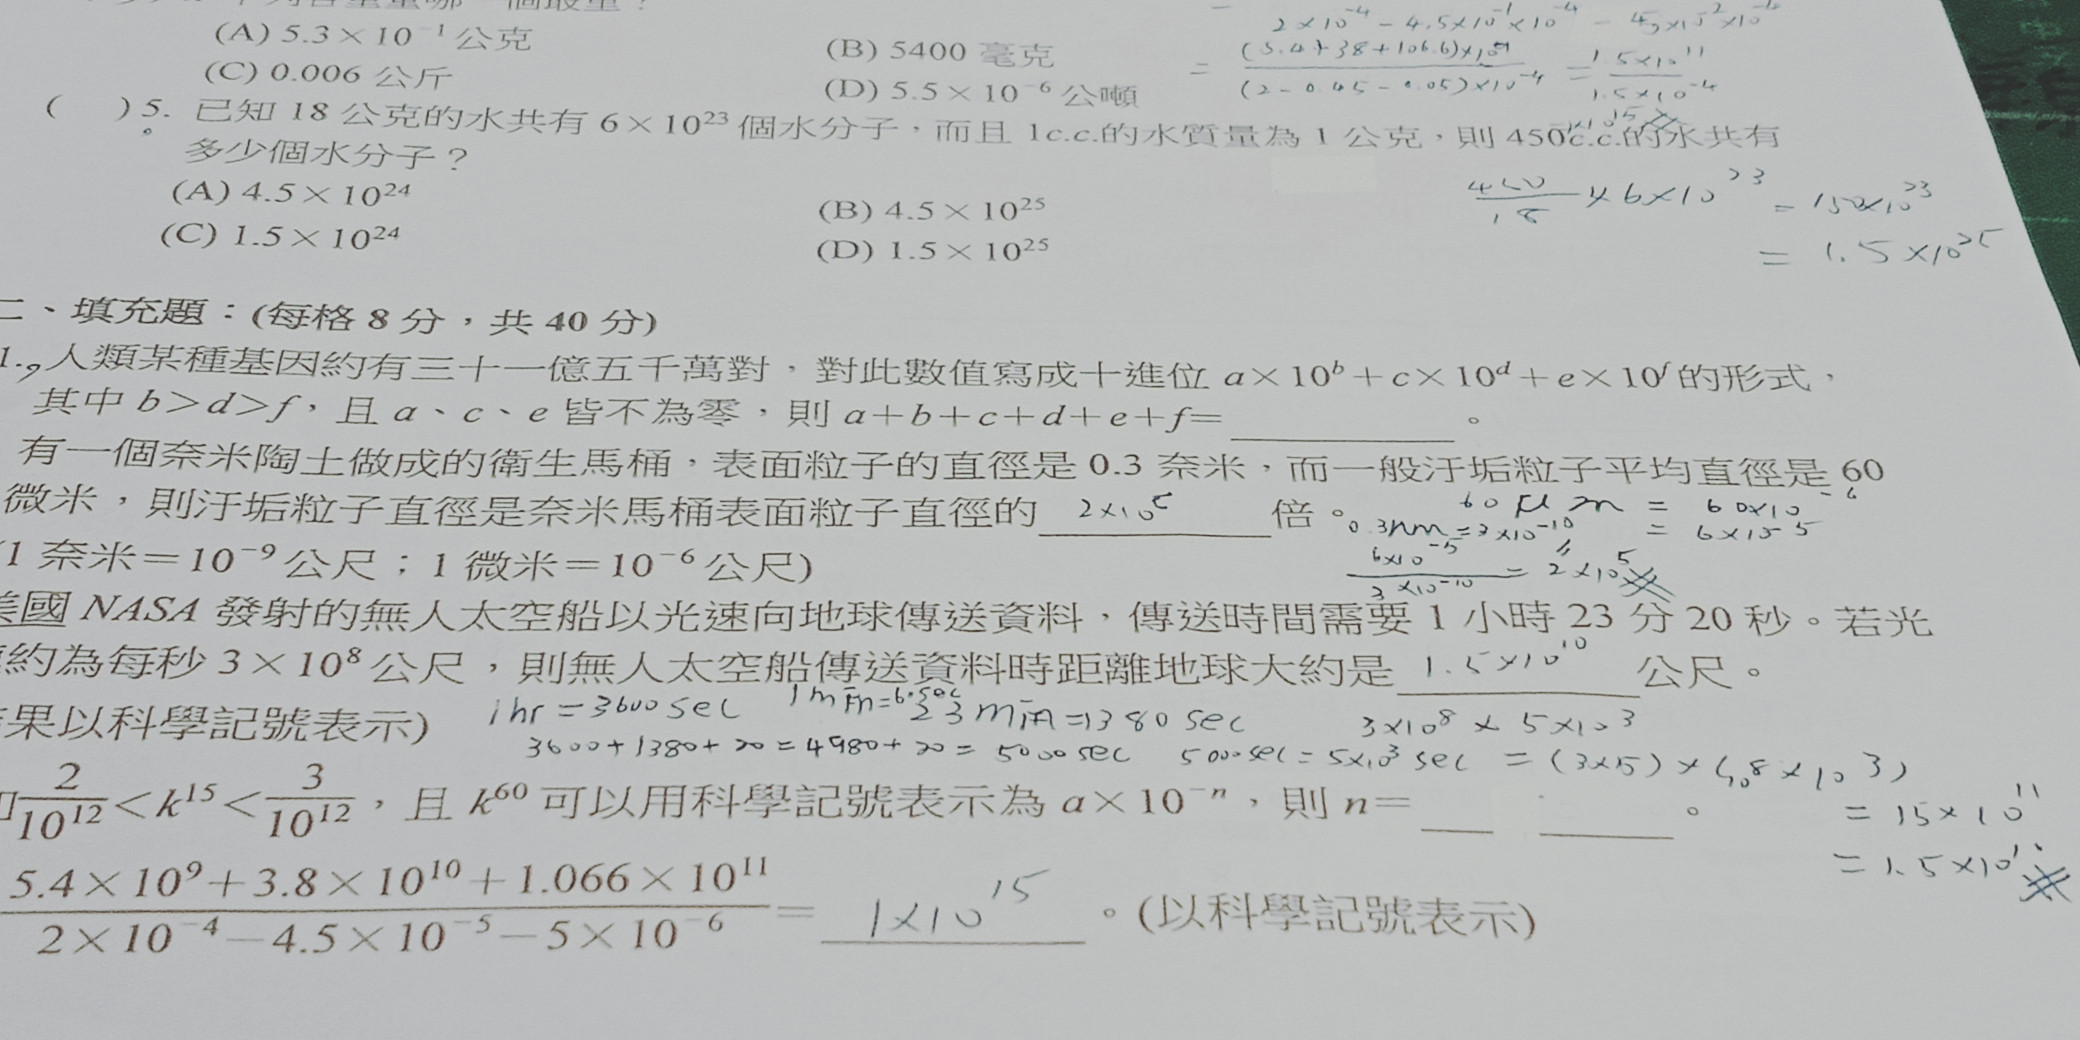 (A) 5.3×10⁻¹公克
(B) 5400 毫克
(C) 0.006 公斤
(D) 5.5×10⁻⁶公噸
2×10⁻⁴ - 4.5×10⁻¹×10⁻⁴ -
= (5.4+38+106.6)×10⁹ / (2-0.45-0.05)×10⁻⁴ = 1.5×10¹¹ / 1.5×10⁻⁴
( )5. 已知 18 公克的水共有 6×10²³個水分子,而且 1c.c.的水質量為 1 公克,則 450c.c.的水共有
多少個水分子?
(A) 4.5×10²⁴
(B) 4.5×10²⁵
(C) 1.5×10²⁴
(D) 1.5×10²⁵
450/18 × 6×10²³ = 150×10²³
= 1.5×10²⁵
二、填充題:(每格 8 分,共 40 分)
1. 人類某種基因約有三十一億五千萬對,對此數值寫成十進位 a×10ᵇ+c×10ᵈ+e×10ᶠ的形式,
其中 b>d>f,且 a、c、e 皆不為零,則 a+b+c+d+e+f=________。
有一個奈米陶土做成的衛生馬桶,表面粒子的直徑是 0.3 奈米,而一般汙垢粒子平均直徑是 60
微米,則汙垢粒子直徑是奈米馬桶表面粒子直徑的 2×10⁵ 倍。
60 μm = 60×10⁻⁶
0.3nm = 3×10⁻¹⁰
= 6×10⁻⁵
6×10⁻⁵ / 3×10⁻¹⁰ = 2×10⁵
(1 奈米=10⁻⁹公尺;1 微米=10⁻⁶公尺)
美國 NASA 發射的無人太空船以光速向地球傳送資料,傳送時間需要 1 小時 23 分 20 秒。若光
約為每秒 3×10⁸公尺,則無人太空船傳送資料時距離地球大約是 1.5×10¹⁰ 公尺。
果以科學記號表示)
1hr = 3600 sec 1min=60sec 23min=1380 sec
3×10⁸ × 5×10³
3600+1380+20=4980+20=5000sec 5000sec=5×10³sec = (3×5)×(10⁸×10³)
= 15×10¹¹
= 1.5×10¹¹
2/10¹²<k¹⁵<3/10¹²,且 k⁶⁰可以用科學記號表示為 a×10⁻ⁿ,則 n=________。
5.4×10⁹+3.8×10¹⁰+1.066×10¹¹ / 2×10⁻⁴-4.5×10⁻⁵-5×10⁻⁶ = 1×10¹⁵ 。(以科學記號表示)